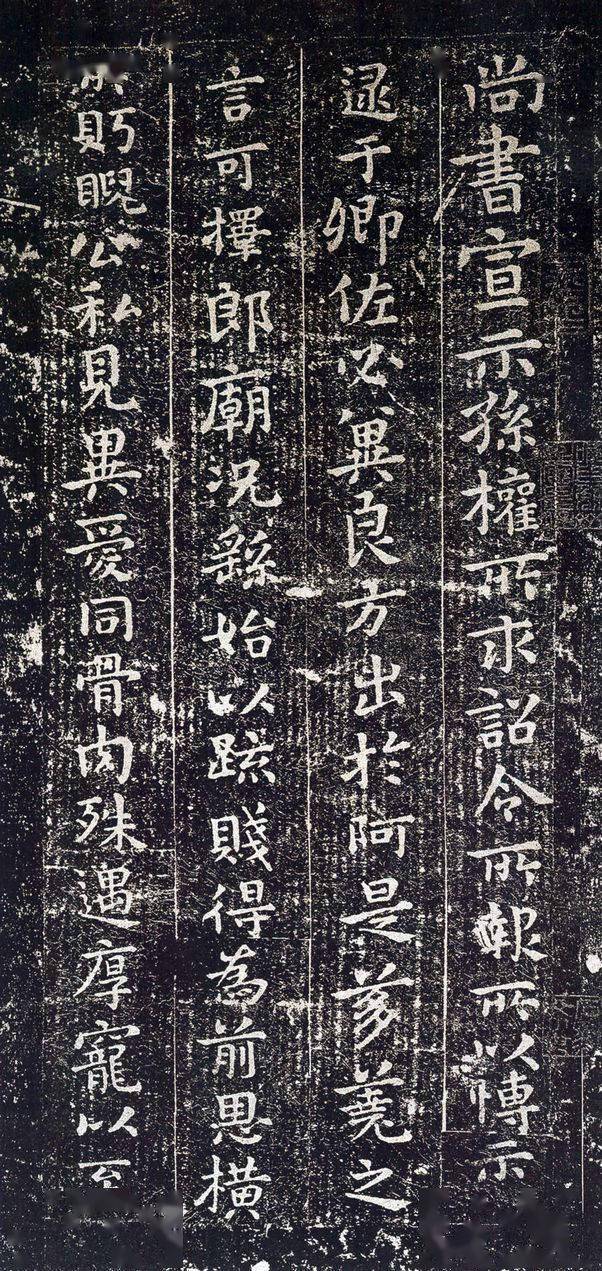 尚書宣示孫權所求詔令所報所以愽示
逮于卿佐必冀良方出於阿是芻蕘之
言可擇郎廟況繇始以疏賤得為前恩橫
所眄睨公私見異愛同骨肉殊遇厚寵以至